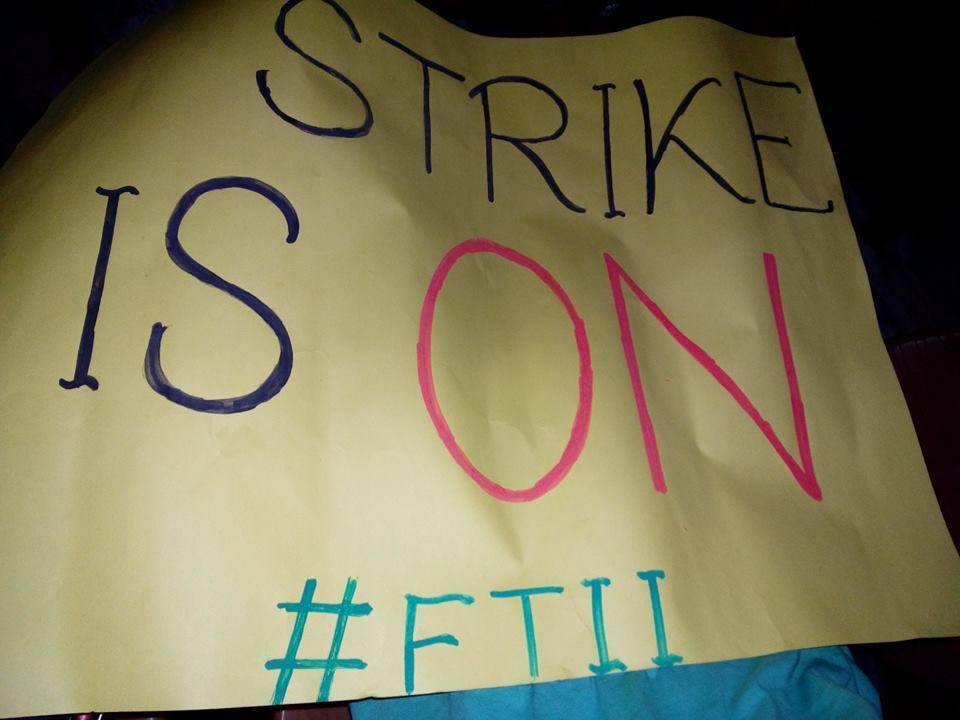 STRIKE
IS ON
#FTII